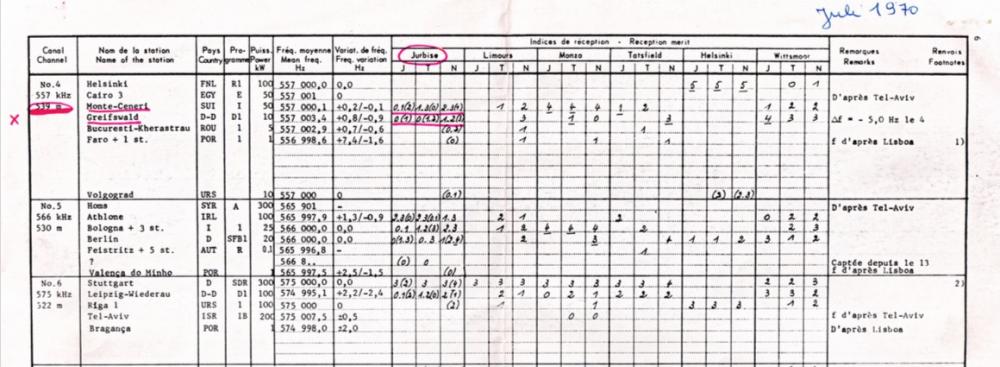 Juli 1970
Indices de réception - Reception merit
Canal Nom de la station Pays Pro- Puiss. Fréq. moyenne Variat. de fréq. Jurbise Limours Monza Tatsfield Helsinki Wittsmoor Remarques Renvois
Channel Name of the station Country gramme Power Mean freq. Freq. variation Remarks Footnotes
kW Hz Hz J T N J T N J T N J T N J T N J T N
No.4 Helsinki FNL R1 100 557 000,0 0,0 5 5 5 0 1
557 kHz Cairo 3 EGY E 50 557 001 0 D'après Tel-Aviv
539 m Monte-Ceneri SUI I 50 557 000,1 +0,2/-0,1 0.1(2) 1.3(0) 2.3(4) 1 2 4 4 4 1 2 1 2 2
x Greifswald D-D D1 10 557 003,4 +0,8/-0,9 0(1) 0(1.2) 1.2(3) 3 1 0 3 4 3 3 Δf = - 5,0 Hz le 4
Bucuresti-Kherastrau ROU 1 5 557 002,9 +0,7/-0,6 (0.2) 1 1
Faro + 1 st. POR 1 1 556 998,6 +7,4/-1,6 (0) 1 1 1 f d'après Lisboa 1)
Volgograd URS 10 557 000 0 (0.1) (3) (2.3)
No.5 Homs SYR A 300 565 901 - D'après Tel-Aviv
566 kHz Athlone IRL 100 565 997,9 +1,3/-0,9 2.3(0) 2.3(01) 1.3 2 1 2 0 2 2
530 m Bologna + 3 st. I 1 25 566 000,0 0,0 0.1 1.2(3) 2.3 1 2 4 4 4 2 2 3
Berlin D SFB1 20 566 000,0 0,0 0(1.3) 0.3 1(2.4) 2 3 4 1 1 2 3 1 2
Feistritz + 5 st. AUT R 0,1 565 996,8 - 1
? 566 8.. (0) 0 Captée depuis le 13
Valença do Minho POR 1 565 997,5 +2,5/-1,5 (0) f d'après Lisboa
No.6 Stuttgart D SDR 300 575 000,0 0,0 3(2) 3 3(4) 3 3 3 3 3 3 3 3 4 2 2 3 2)
575 kHz Leipzig-Wiederau D-D D1 100 574 995,1 +2,2/-2,4 0.1(2) 1.2(0) 2(1) 2 1 0 2 1 2 2 2 3 3 2
522 m Riga 1 URS 1 100 575 000 0 (2) 1 1 3 3 3 1 2
Tel-Aviv ISR 1B 200 575 007,5 ±0,5 0 0 f d'après Tel-Aviv
Bragança POR 1 574 998,0 ±2,0 D'après Lisboa